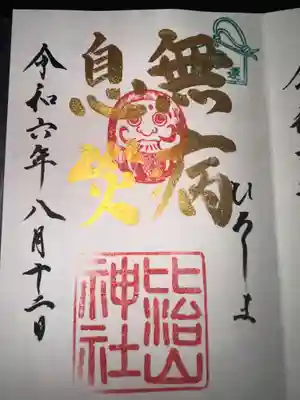 無病
息災
ひろしま
比治山
神社
令和六年八月十二日